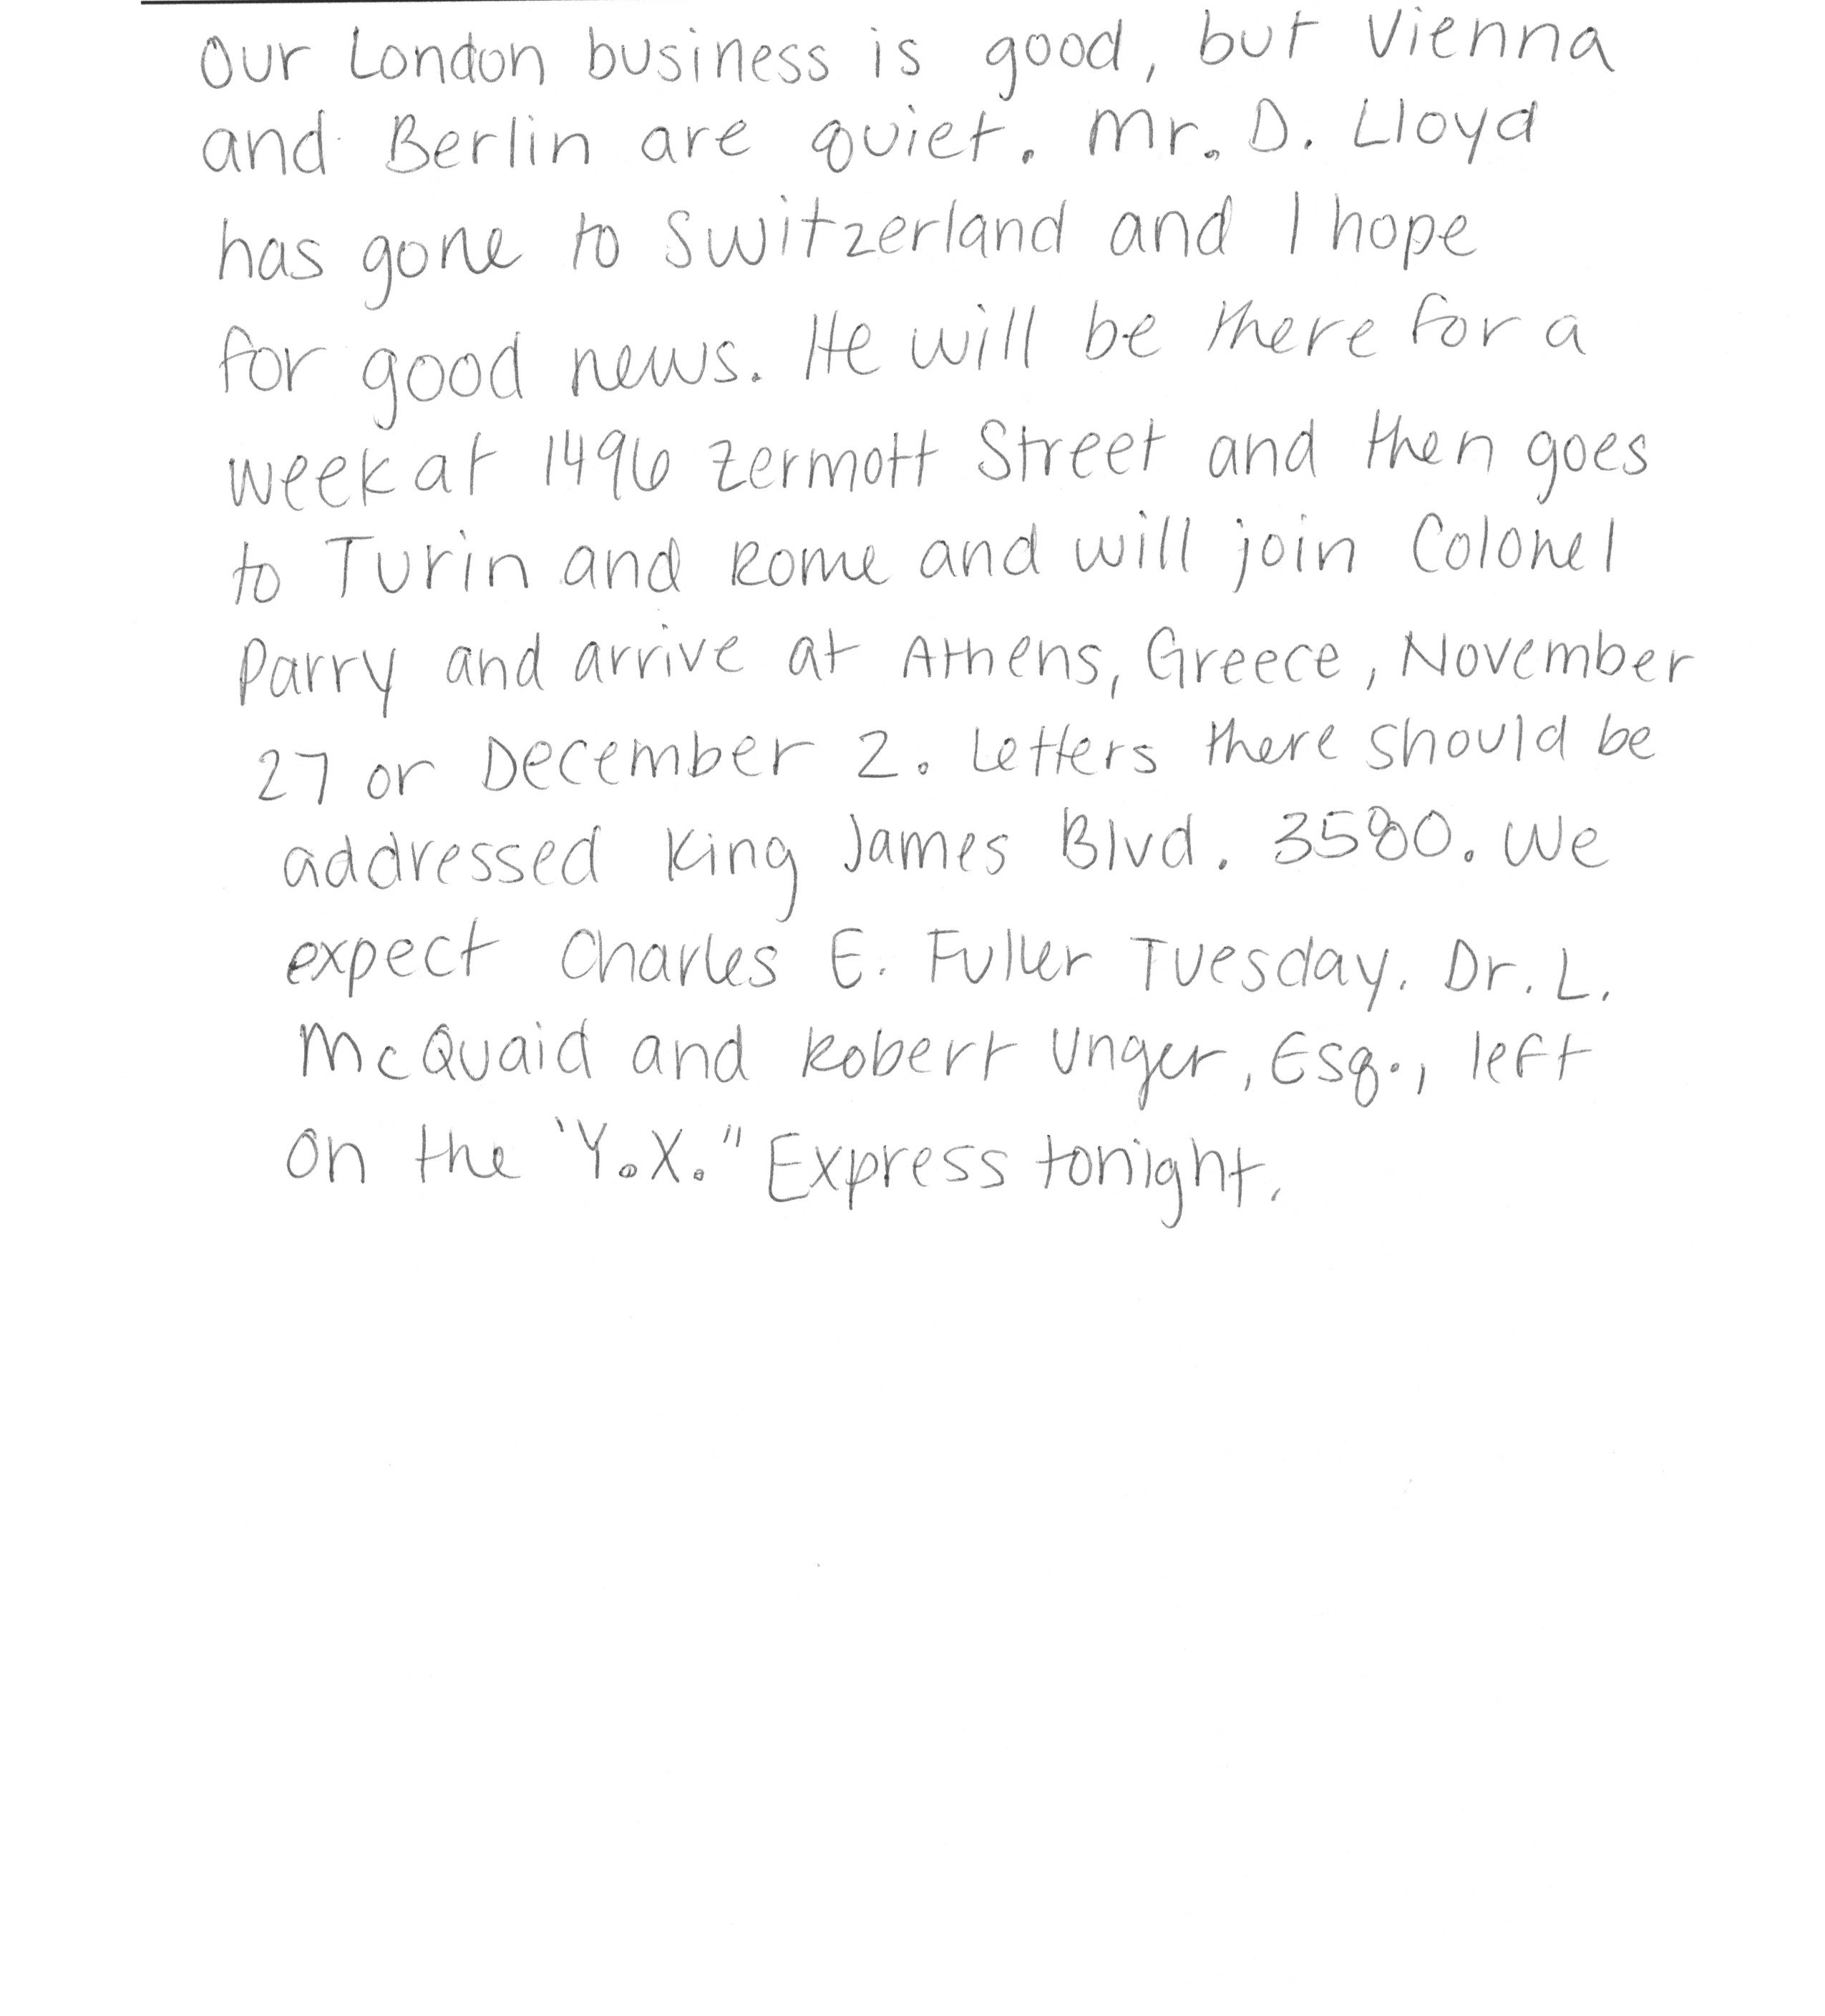 Our London business is good, but Vienna
and Berlin are quiet. Mr. D. Lloyd
has gone to Switzerland and I hope
for good news. He will be there for a
week at 1496 Zermott Street and then goes
to Turin and Rome and will join Colonel
Parry and arrive at Athens, Greece, November
27 or December 2. Letters there should be
addressed King James Blvd. 3580. We
expect Charles E. Fuller Tuesday. Dr. L.
McQuaid and Robert Unger, Esq., left
on the "Y.X." Express tonight.